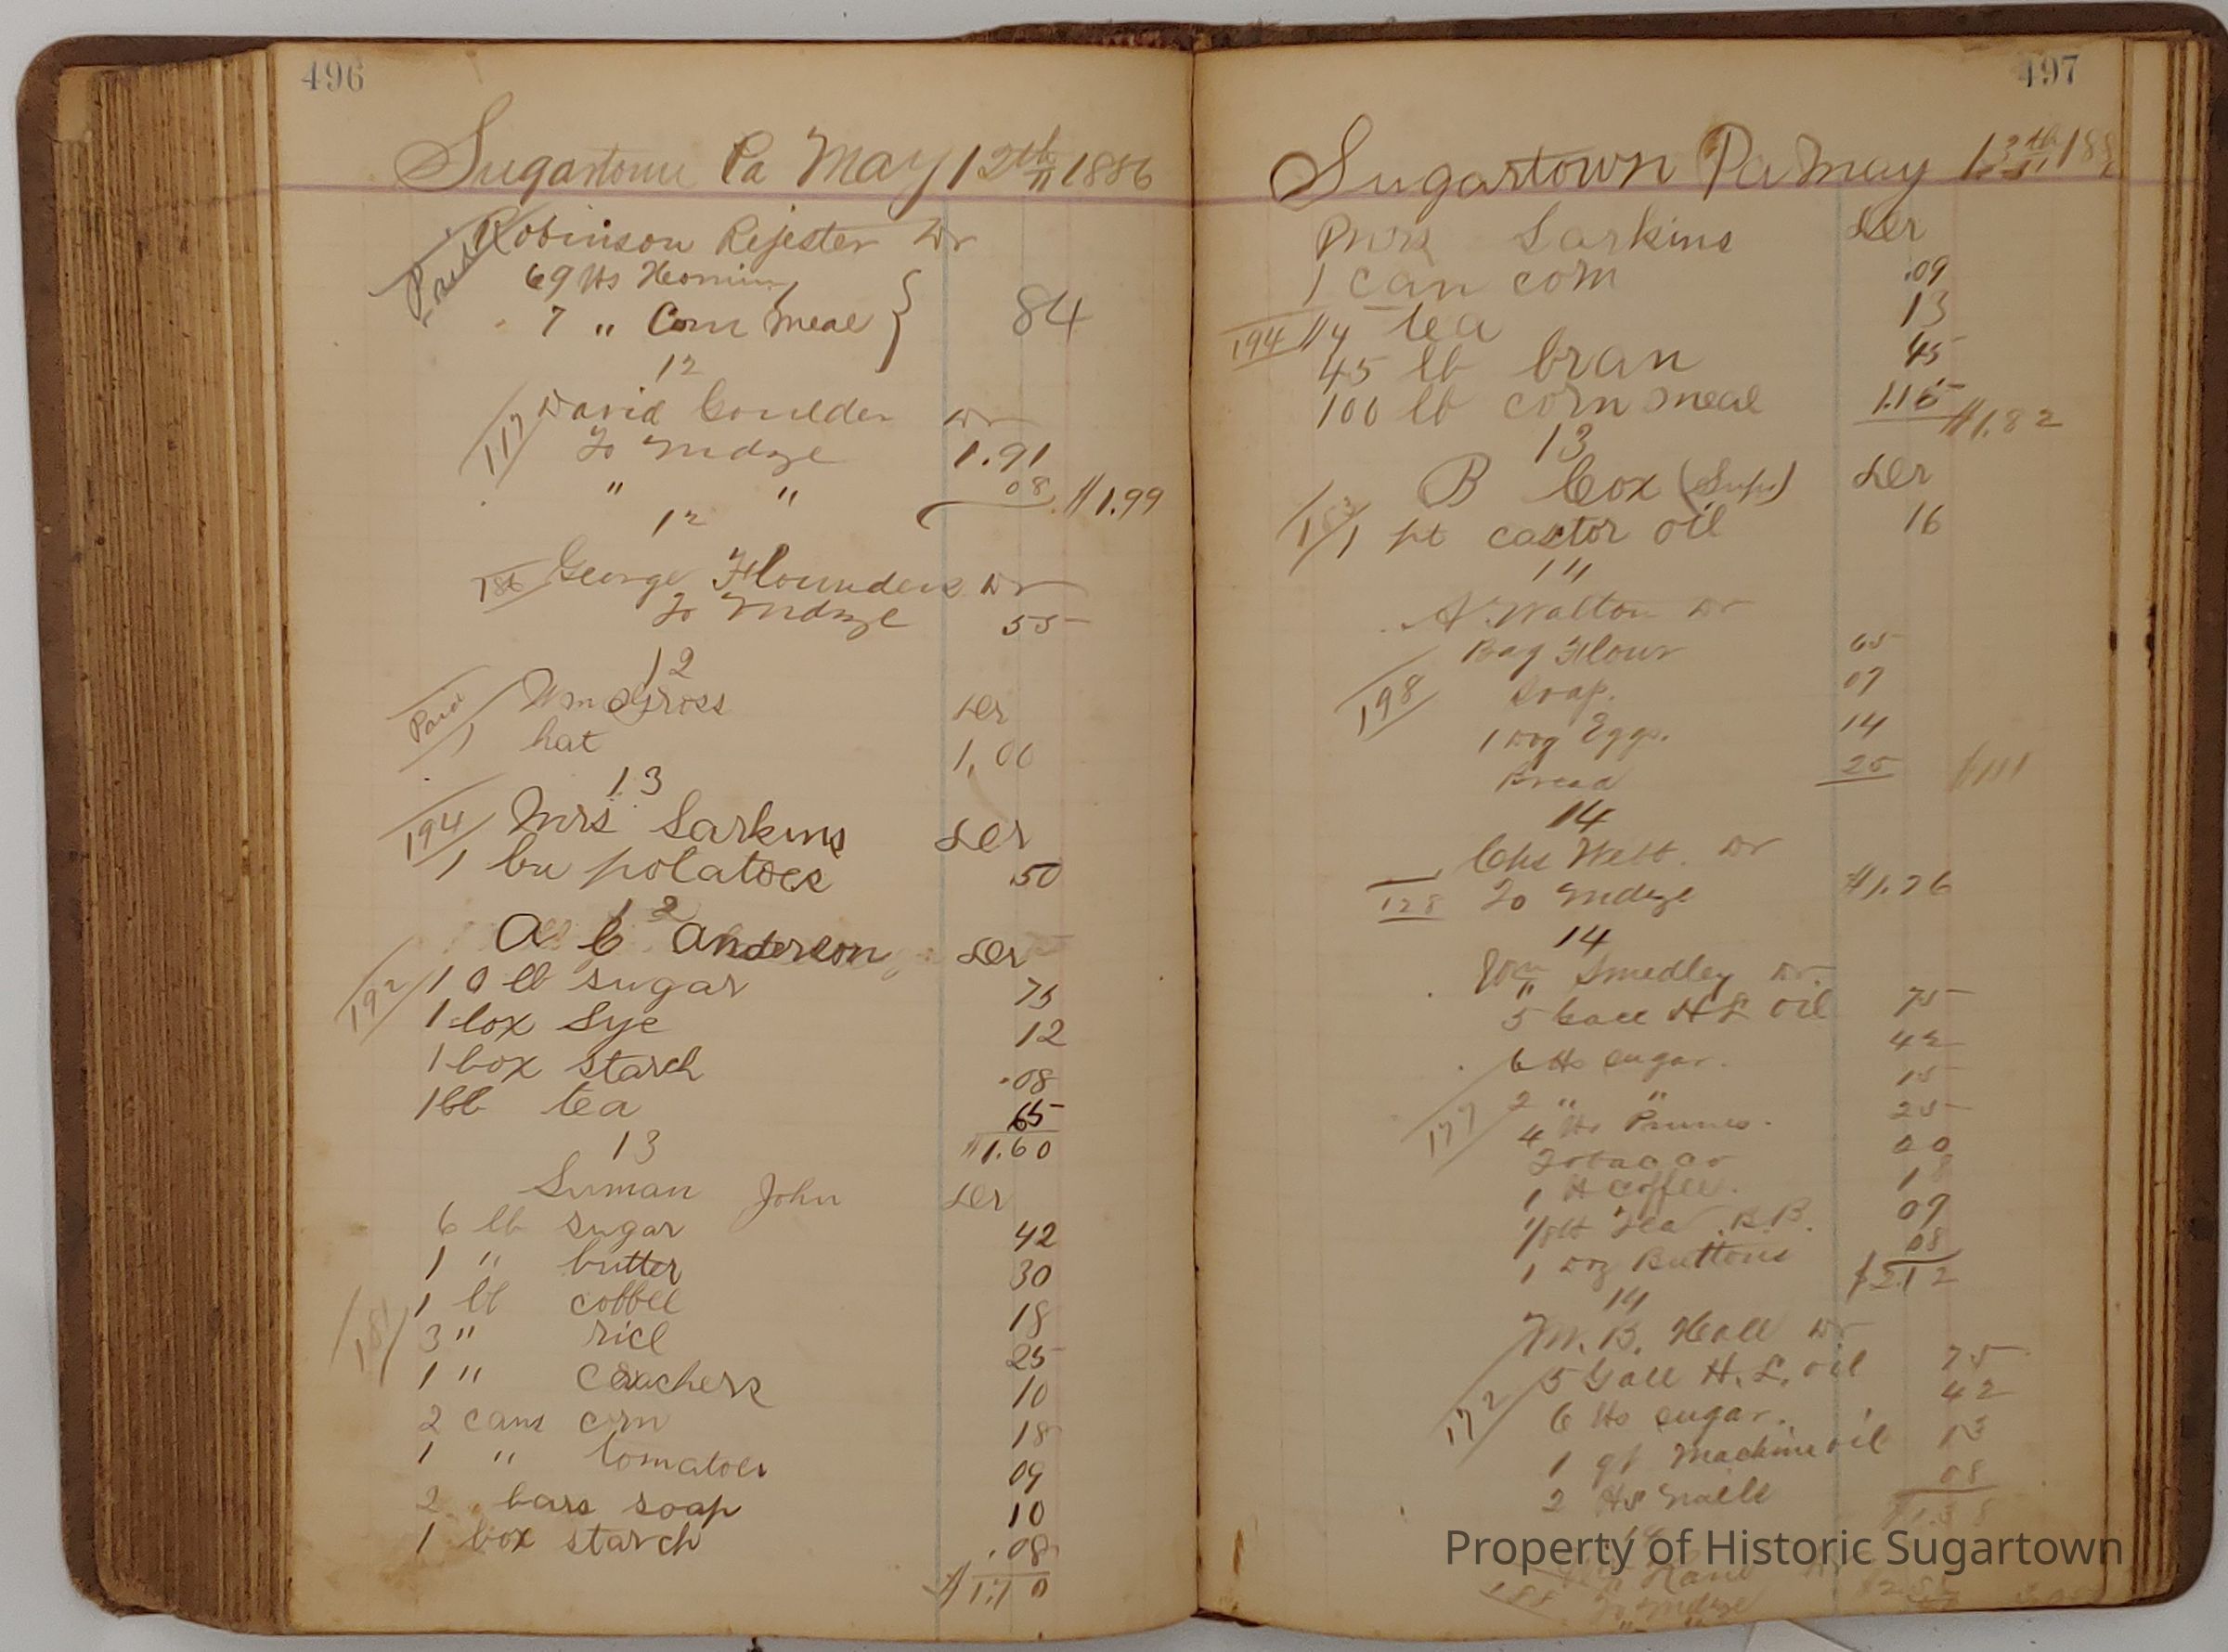 496
Sugartown Pa May 12th 1886
Paid Robinson Rejester Dr
69 lbs Hominy
7 " Corn Meal } 84
12
117 David Goulder Dr
To Mdze 1.91
" " 08 $1.99
12
186 George Flounders Dr
To Mdze 55
12
Paid Wm Gross Der
1 hat 1,00
13
194 Mrs Larkins Der
1 bu potatoes .50
12
A C Anderson Der
192 10 lb sugar 75
1 box Lye 12
1 box starch .08
1 lb tea 65
$1.60
13
Luman John Der
6 lb sugar 42
1 " butter 30
1 lb coffee 18
181 3 " rice 25
1 " crackers 10
2 cans corn 18
1 " tomatoes 09
2 bars soap 10
1 box starch .08
$1.70
497
Sugartown Pa May 13th 188
Mrs Larkins Der
1 can corn .09
194 1/4 tea 13
45 lb bran 45
100 lb corn meal 1.15 $1.82
13
B Cox (Supr) Der
1 pt castor oil 16
1"
A. Walton Dr
Bag Flour 65
198 Soap. 07
1 Doz Eggs. 14
Bread 25 $1.11
14
Chs Wett. Dr
128 To Mdze $1.76
14
Wm Smedley Dr.
5 Gall H L oil 75
6 lbs sugar. 42
2 " " 15
177 4 lbs Prunes. 25
Tobacco 20
1 lb coffee. 18
1/8 lb Tea B.B. 09
1 Doz Buttons 08
$2.12
14
M. B. Hall Dr
5 Gall H. L. oil 75
172 6 lbs sugar. 42
1 qt Machine oil 13
2 lbs Nails 08
$1.38
14
188 To Mdze
Property of Historic Sugartown